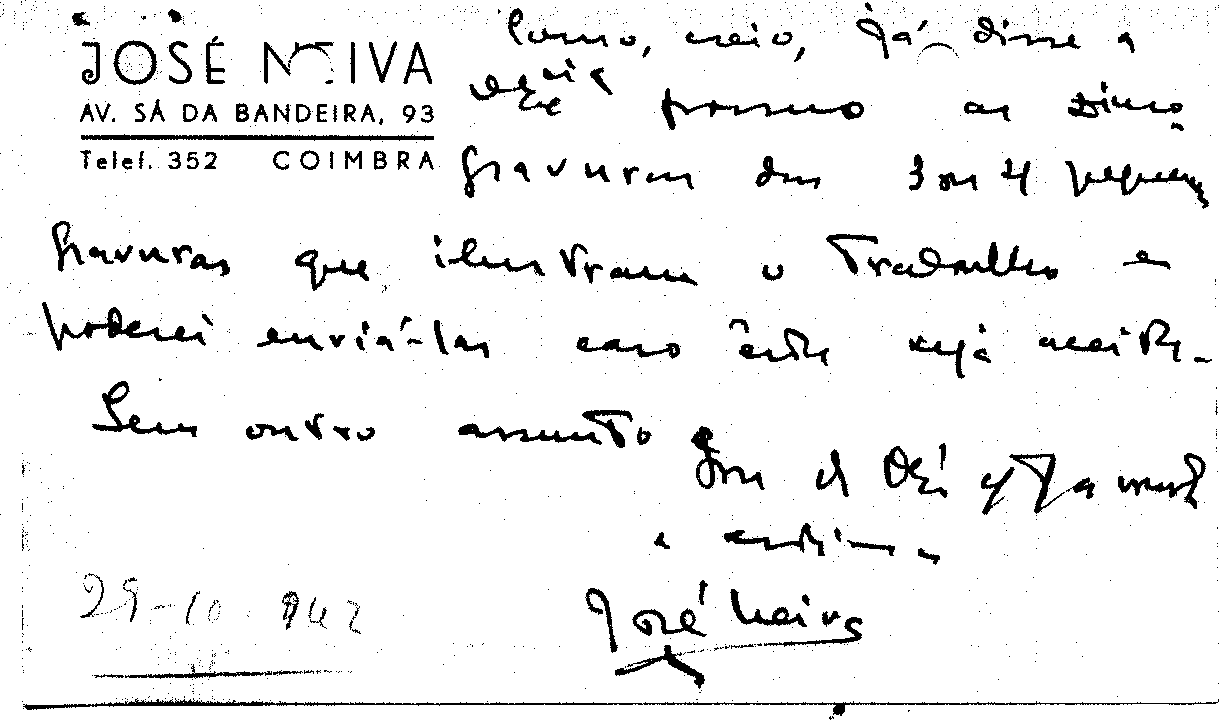 JOSÉ NEIVA
AV. SÁ DA BANDEIRA, 93
Telef. 352 COIMBRA
Como, creio, já disse a
V. Ex.cia possuo as zinco
gravuras das 3 ou 4 pequenas
gravuras que ilustram o trabalho e
poderei enviá-las caso êste seja aceite.
Sem outro assunto
Sou de V. Ex.
a
José Neiva
29-10-942